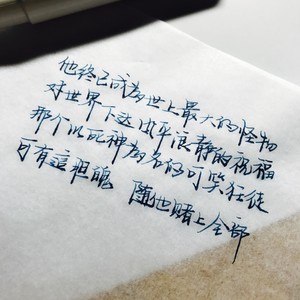 他终已成為世上最大的怪物
好世界下达风平浪静的祝福
那个以死神為名的可笑狂徒
可有這胆魄 随他赌上全部